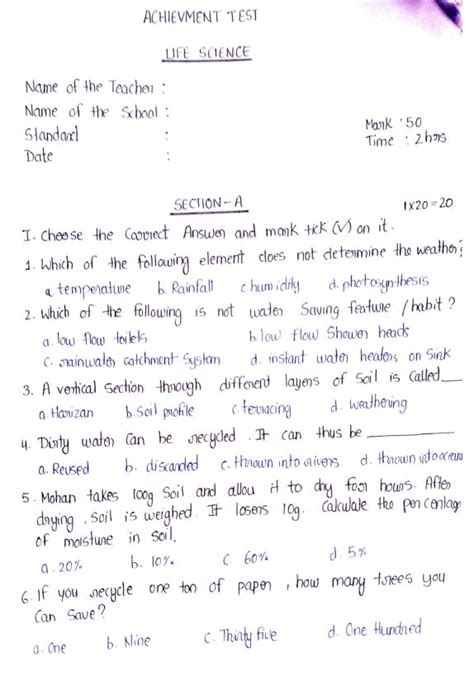 ACHIEVMENT TEST
LIFE SCIENCE
Name of the Teacher :
Name of the School :
Standard :
Date :
Mark : 50
Time : 2hrs
SECTION-A
1x20=20
I. Choose the Coorrect Answer and mark tick (√) on it.
1. Which of the following element does not determine the weather?
a. temperature b. Rainfall c. humidity d. photosynthesis
2. Which of the following is not water Saving feature / habit ?
a. low flow toilets b. low flow Shower heads
c. rainwater catchment System d. instant water heaters on Sink
3. A vertical Section through different layers of Soil is Called__
a. Horizan b. Soil profile c. terracing d. weathering
4. Dirty water Can be recycled. It can thus be ________
a. Reused b. discarded c. thrown into rivers d. thrown into ocean
5. Mohan takes 100g Soil and allow it to dry for hours. After
drying, Soil is weighed. It losers 10g. Calculate the percentage
of moisture in Soil.
a. 20% b. 10% c. 60% d. 5%
6. If you recycle one ton of paper, how many trees you
Can Save?
a. One b. Nine c. Thirty five d. One Hundred